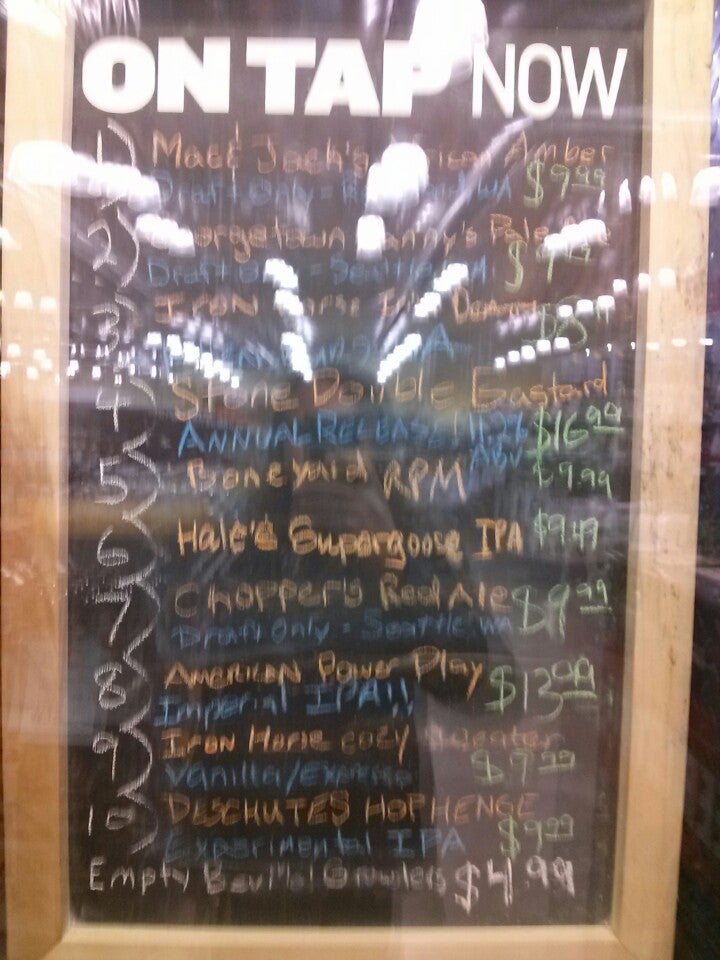 ON TAP NOW
1) Mac & Jack's African Amber
Draft Only = Redmond WA $9.99
2) Georgetown Manny's Pale Ale
Draft = Seattle
3) Iron Horse Death
4) Stone Double Bastard
ANNUAL RELEASE! $16.99
ABV
5) Boneyard RPM $9.99
6) Hale's Supergoose IPA $9.49
7) Chopper's Red Ale
Draft Only = Seattle, WA $9.99
8) American Power Play
Imperial IPA!! $13.99
9) Iron Horse cozy sweater
Vanilla/Expresso $9.99
10) DESCHUTES HOPHENGE
Experimental IPA $9.99
Empty Growlers $4.99